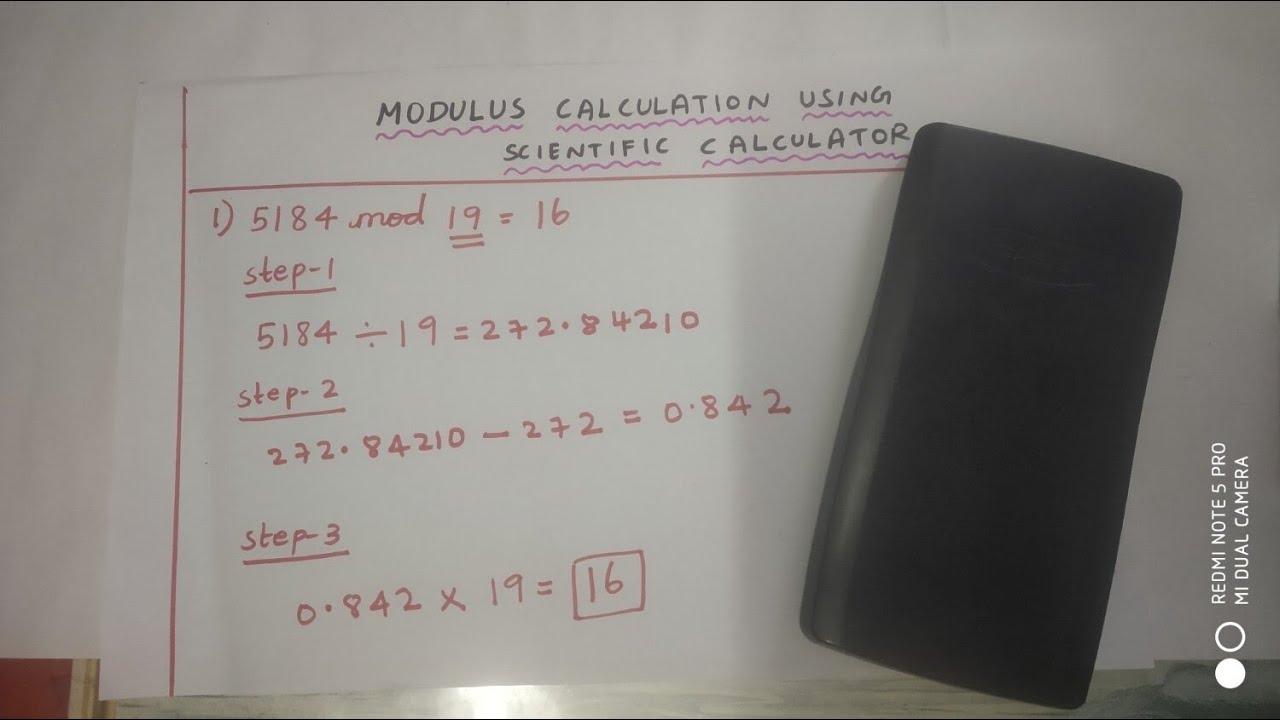 MODULUS CALCULATION USING
SCIENTIFIC CALCULATOR
1) 5184 mod 19 = 16
step-1
5184 ÷ 19 = 272.84210
step-2
272.84210 - 272 = 0.842
step-3
0.842 x 19 = 16
REDMI NOTE 5 PRO
MI DUAL CAMERA